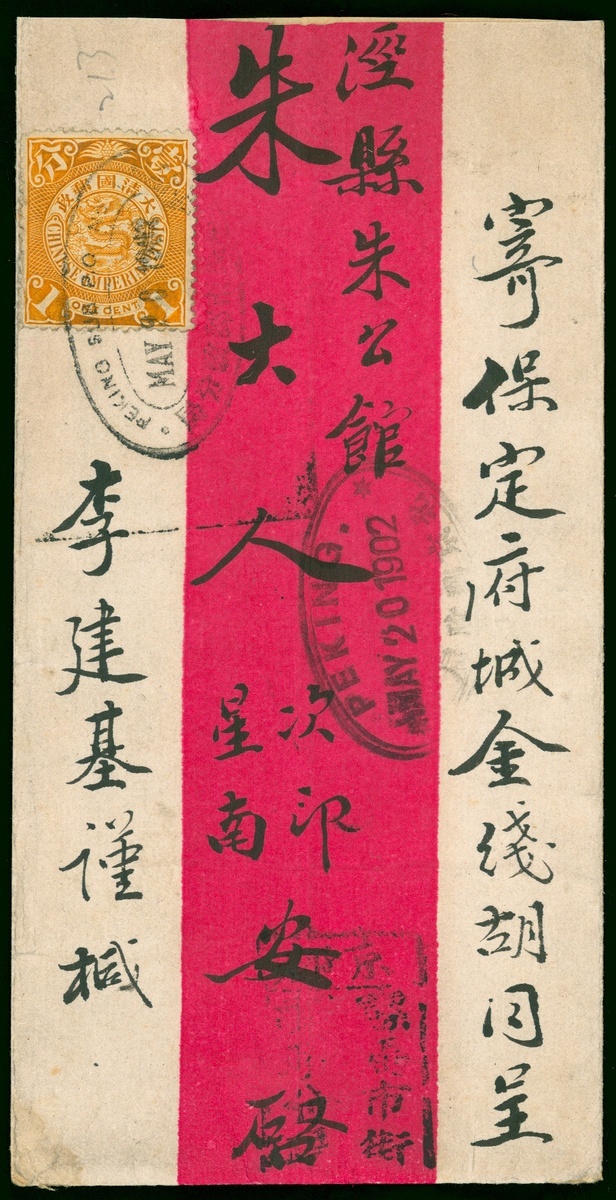 寄保定府城金綫胡同呈
涇縣朱公館
朱大人
次印
星南
安啓
李建基謹椷
壹分
大清國郵政
CHINESE IMPERIAL POST
1 ONE CENT 1
PEKING
MAY 20 1902
PEKING
MAY 20
京
市街
213